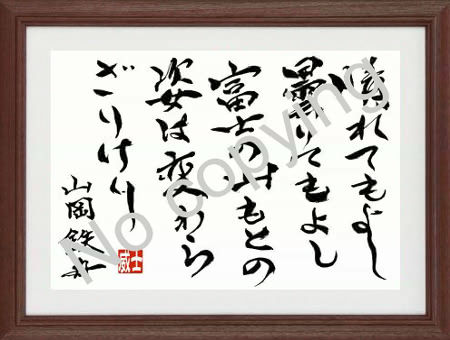 晴れてもよし
曇りてもよし
富士の山もとの
姿は変わら
ざりけり
山岡鉄舟
士威
No copying